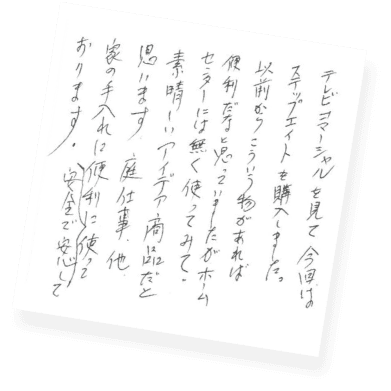 テレビコマーシャルを見て今回は
ステップエイトを購入しました。
以前からこういう物があれば
便利だなと思っていましたがホーム
センターには無く使ってみて。
素晴しいアイデア商品だと
思います 庭仕事、他、
家の手入れに便利に使って
おります。 安全で安心して